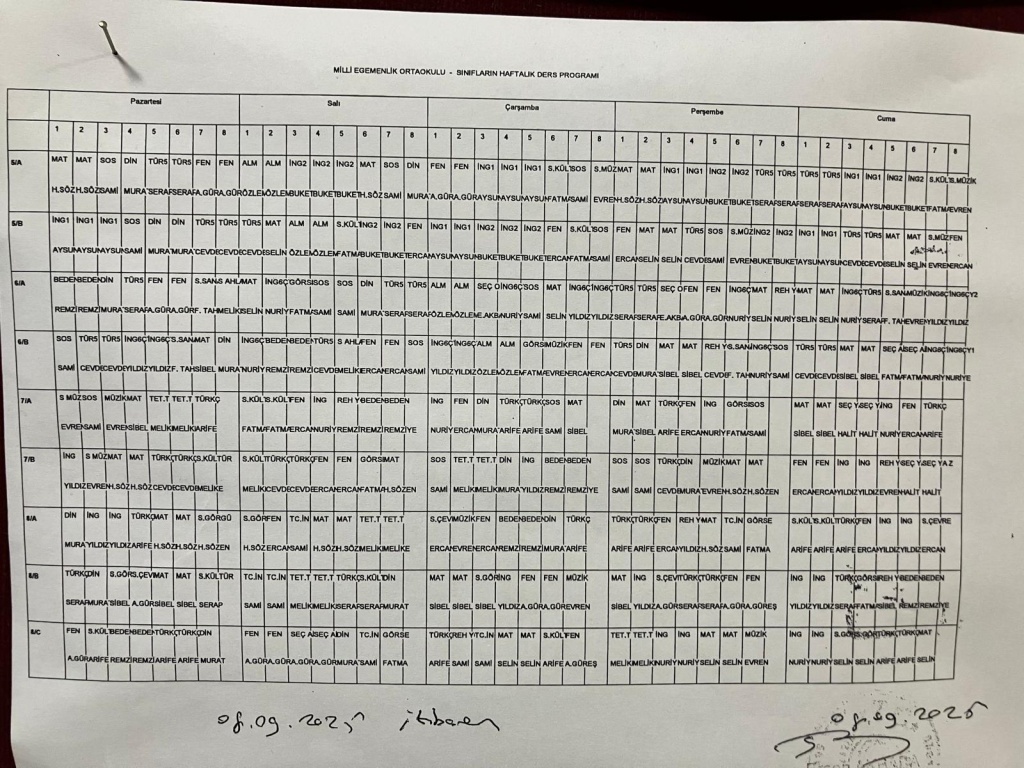 MİLLİ EGEMENLİK ORTAOKULU - SINIFLARIN HAFTALIK DERS PROGRAMI
Pazartesi Salı Çarşamba Perşembe Cuma
1 2 3 4 5 6 7 8 1 2 3 4 5 6 7 8 1 2 3 4 5 6 7 8 1 2 3 4 5 6 7 8 1 2 3 4 5 6 7 8
5/A MAT MAT SOS DİN TÜR5 TÜR5 FEN FEN ALM ALM İNG2 İNG2 İNG2 MAT SOS DİN FEN FEN İNG1 İNG1 İNG1 S.KÜL SOS S.MÜZ MAT MAT İNG1 İNG1 İNG2 İNG2 TÜR5 TÜR5 TÜR5 TÜR5 İNG1 İNG1 İNG2 İNG2 S.KÜL S.MÜZİK
H.SÖZ H.SÖZ SAMİ MURA SERAF SERAF A.GÜRA A.GÜR ÖZLEM ÖZLEM BUKET BUKET BUKET H.SÖZ SAMİ MURA A.GÜRA A.GÜRA AYSUN AYSUN AYSUN FATMA SAMİ EVREN H.SÖZ H.SÖZ AYSUN AYSUN BUKET BUKET SERAF SERAF SERAF SERAF AYSUN AYSUN BUKET BUKET FATMA EVREN
5/B İNG1 İNG1 İNG1 SOS DİN DİN TÜR5 TÜR5 TÜR5 MAT ALM ALM S.KÜL İNG2 İNG2 FEN İNG1 İNG1 İNG2 İNG2 İNG2 FEN S.KÜL SOS FEN MAT MAT TÜR5 SOS S.MÜZ İNG2 İNG2 İNG1 İNG1 TÜR5 TÜR5 MAT MAT S.MÜZ FEN
AYSUN AYSUN AYSUN SAMİ MURA MURA CEVDE CEVDE CEVDE SELİN ÖZLEM ÖZLEM FATMA BUKET BUKET ERCAN AYSUN AYSUN BUKET BUKET BUKET ERCAN FATMA SAMİ ERCAN SELİN SELİN CEVDE SAMİ EVREN BUKET BUKET AYSUN AYSUN CEVDE CEVDE SELİN SELİN EVREN ERCAN
6/A BEDEN BEDEN DİN TÜR5 FEN FEN S.SAN S AHL MAT İNG6Ç GÖRS SOS SOS DİN TÜR5 TÜR5 ALM ALM SEÇ O İNG6Ç SOS MAT İNG6Ç İNG6Ç TÜR5 TÜR5 SEÇ O FEN FEN İNG6Ç MAT REH Y MAT MAT İNG6Ç TÜR5 S.SAN MÜZİK İNG6Ç İNG6ÇY2
REMZİ REMZİ MURA SERAF A.GÜRA A.GÜR F. TAH MELİK SELİN NURİY FATMA SAMİ SAMİ MURA SERAF SERAF ÖZLEM ÖZLEM E.AKB NURİY SAMİ SELİN YILDIZ YILDIZ SERAF SERAF E.AKB A.GÜRA A.GÜR NURİY SELİN NURİY SELİN SELİN NURİY SERAF F. TAH EVREN YILDIZ YILDIZ
6/B SOS TÜR5 TÜR5 İNG6Ç İNG6Ç S.SAN MAT DİN İNG6Ç BEDEN BEDEN TÜR5 S AHL FEN FEN SOS İNG6Ç İNG6Ç ALM ALM GÖRS MÜZİK FEN FEN TÜR5 DİN MAT MAT REH Y S.SAN İNG6Ç SOS TÜR5 TÜR5 MAT MAT SEÇ A SEÇ A İNG6Ç İNG6ÇY1
SAMİ CEVDE CEVDE YILDIZ YILDIZ F. TAH SİBEL MURA NURİY REMZİ REMZİ CEVDE MELİK ERCAN ERCAN SAMİ YILDIZ YILDIZ ÖZLEM ÖZLEM FATMA EVREN ERCAN ERCAN CEVDE MURA SİBEL SİBEL CEVDE F. TAH NURİY SAMİ CEVDE CEVDE SİBEL SİBEL FATMA FATMA NURİY NURİYE
7/A S MÜZ SOS MÜZİK MAT TET.T TET.T TÜRKÇ S.KÜL S.KÜL FEN İNG REH Y BEDEN BEDEN İNG FEN DİN TÜRKÇ TÜRKÇ SOS MAT DİN MAT TÜRKÇ FEN İNG GÖRS SOS MAT MAT SEÇ Y SEÇ Y İNG FEN TÜRKÇ
EVREN SAMİ EVREN SİBEL MELİK MELİK ARİFE FATMA FATMA ERCAN NURİY REMZİ REMZİ REMZİYE NURİY ERCAN MURA ARİFE ARİFE SAMİ SİBEL MURA SİBEL ARİFE ERCAN NURİY FATMA SAMİ SİBEL SİBEL HALİT HALİT NURİY ERCAN ARİFE
7/B İNG S MÜZ MAT MAT TÜRKÇ TÜRKÇ S.KÜLTÜR S.KÜL TÜRKÇ TÜRKÇ FEN FEN GÖRS MAT SOS TET.T TET.T DİN İNG BEDEN BEDEN SOS SOS TÜRKÇ DİN MÜZİK MAT MAT FEN FEN İNG İNG REH Y SEÇ Y SEÇ YAZ
YILDIZ EVREN H.SÖZ H.SÖZ CEVDE CEVDE MELİKE MELİK CEVDE CEVDE ERCAN ERCAN FATMA H.SÖZEN SAMİ MELİK MELİK MURA YILDIZ REMZİ REMZİYE SAMİ SAMİ CEVDE MURA EVREN H.SÖZ H.SÖZEN ERCAN ERCAN YILDIZ YILDIZ EVREN HALİT HALİT
8/A DİN İNG İNG TÜRKÇ MAT MAT S.GÖRGÜ S.GÖR FEN TC.İN MAT MAT TET.T TET.T S.ÇEV MÜZİK FEN BEDEN BEDEN DİN TÜRKÇ TÜRKÇ TÜRKÇ FEN REH Y MAT TC.İN GÖRSE S.KÜL S.KÜL TÜRKÇ FEN İNG İNG S.ÇEVRE
MURA YILDIZ YILDIZ ARİFE H.SÖZ H.SÖZ H.SÖZEN H.SÖZ ERCAN SAMİ H.SÖZ H.SÖZ MELİK MELİKE ERCAN EVREN ERCAN REMZİ REMZİ MURA ARİFE ARİFE ARİFE ERCAN YILDIZ H.SÖZ SAMİ FATMA ARİFE ARİFE ARİFE ERCAN YILDIZ YILDIZ ERCAN
8/B TÜRKÇ DİN İNG S.GÖR S.ÇEV MAT MAT S.KÜLTÜR TC.İN TC.İN TET.T TET.T TÜRKÇ S.KÜL DİN MAT MAT S.GÖR İNG FEN FEN MÜZİK MAT İNG S.ÇEV TÜRKÇ TÜRKÇ FEN FEN İNG İNG TÜRKÇ GÖRS REH Y BEDEN BEDEN
SERAF MURA SİBEL A.GÜR SİBEL SİBEL SERAP SAMİ SAMİ MELİK MELİK SERAF SERAF MURAT SİBEL SİBEL SİBEL YILDIZ A.GÜRA A.GÜR EVREN SİBEL YILDIZ A.GÜR SERAF SERAF A.GÜRA A.GÜREŞ YILDIZ YILDIZ SERAF FATMA SİBEL REMZİ REMZİYE
8/C FEN S.KÜL BEDEN BEDEN TÜRKÇ TÜRKÇ DİN FEN FEN SEÇ A SEÇ A DİN TC.İN GÖRSE TÜRKÇ REH Y TC.İN MAT MAT S.KÜL FEN TET.T TET.T İNG İNG MAT MAT MÜZİK İNG İNG S.GÖR S.GÖR TÜRKÇ TÜRKÇ MAT
A.GÜR ARİFE REMZİ REMZİ ARİFE ARİFE MURAT A.GÜRA A.GÜRA A.GÜRA A.GÜR MURA SAMİ FATMA ARİFE SAMİ SAMİ SELİN SELİN ARİFE A.GÜREŞ MELİK MELİK NURİY NURİY SELİN SELİN EVREN NURİY NURİY SELİN SELİN ARİFE ARİFE SELİN
08.09.2025 itibaren 08.09.2025